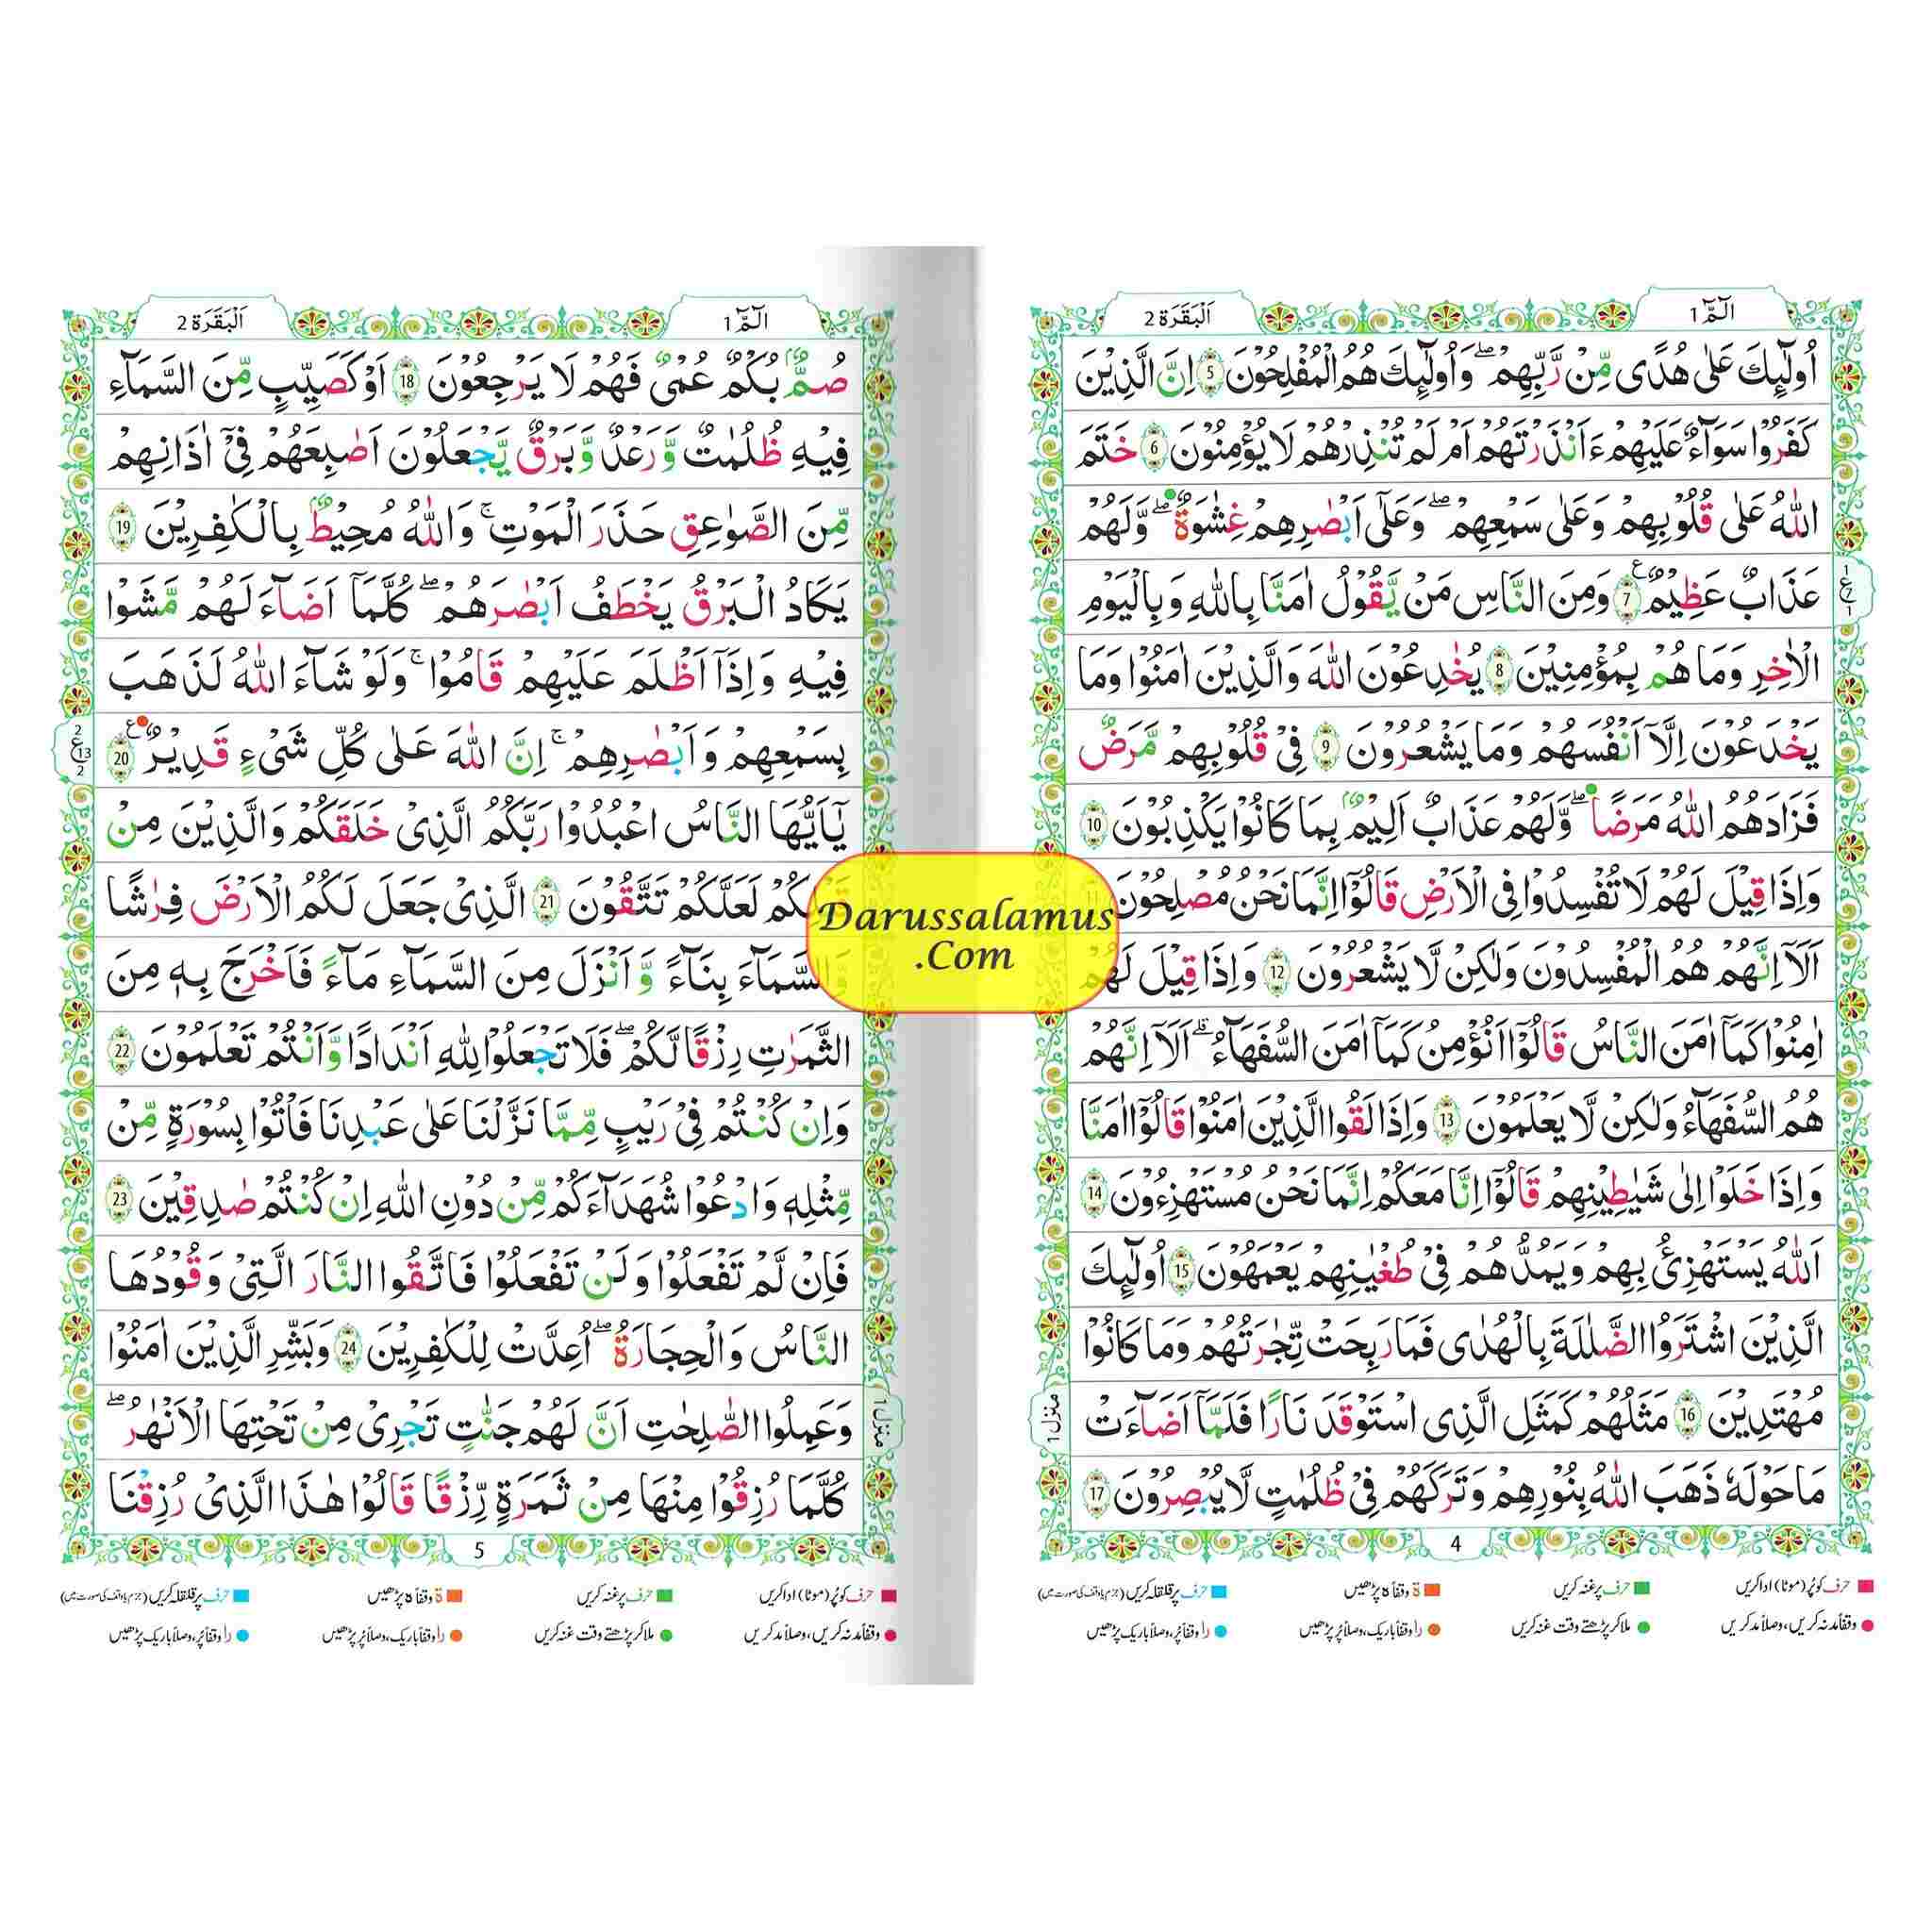 الٓمّٓ 1
اَلْبَقَرَة 2
اُولٰٓئِكَ عَلٰى هُدًى مِّنْ رَّبِّهِمْ ۖ وَاُولٰٓئِكَ هُمُ الْمُفْلِحُوْنَ 5 اِنَّ الَّذِيْنَ
كَفَرُوْا سَوَآءٌ عَلَيْهِمْ ءَاَنْذَرْتَهُمْ اَمْ لَمْ تُنْذِرْهُمْ لَا يُؤْمِنُوْنَ 6 خَتَمَ
اللّٰهُ عَلٰى قُلُوْبِهِمْ وَعَلٰى سَمْعِهِمْ ۖ وَعَلٰٓى اَبْصٰرِهِمْ غِشٰوَةٌ ۖ وَّلَهُمْ
عَذَابٌ عَظِيْمٌ 7 وَمِنَ النَّاسِ مَنْ يَّقُوْلُ اٰمَنَّا بِاللّٰهِ وَبِالْيَوْمِ
1 ع 7 1
الْاٰخِرِ وَمَا هُمْ بِمُؤْمِنِيْنَ 8 يُخٰدِعُوْنَ اللّٰهَ وَالَّذِيْنَ اٰمَنُوْا وَمَا
يَخْدَعُوْنَ اِلَّآ اَنْفُسَهُمْ وَمَا يَشْعُرُوْنَ 9 فِيْ قُلُوْبِهِمْ مَّرَضٌ
فَزَادَهُمُ اللّٰهُ مَرَضًا ۖ وَّلَهُمْ عَذَابٌ اَلِيْمٌ بِمَا كَانُوْا يَكْذِبُوْنَ 10
وَاِذَا قِيْلَ لَهُمْ لَا تُفْسِدُوْا فِى الْاَرْضِ قَالُوْٓا اِنَّمَا نَحْنُ مُصْلِحُوْنَ 11
اَلَآ اِنَّهُمْ هُمُ الْمُفْسِدُوْنَ وَلٰكِنْ لَّا يَشْعُرُوْنَ 12 وَاِذَا قِيْلَ لَهُمْ
اٰمِنُوْا كَمَآ اٰمَنَ النَّاسُ قَالُوْٓا اَنُؤْمِنُ كَمَآ اٰمَنَ السُّفَهَآءُ ۗ اَلَآ اِنَّهُمْ
هُمُ السُّفَهَآءُ وَلٰكِنْ لَّا يَعْلَمُوْنَ 13 وَاِذَا لَقُوا الَّذِيْنَ اٰمَنُوْا قَالُوْٓا اٰمَنَّا
وَاِذَا خَلَوْا اِلٰى شَيٰطِيْنِهِمْ قَالُوْٓا اِنَّا مَعَكُمْ اِنَّمَا نَحْنُ مُسْتَهْزِءُوْنَ 14
اَللّٰهُ يَسْتَهْزِئُ بِهِمْ وَيَمُدُّهُمْ فِيْ طُغْيٰنِهِمْ يَعْمَهُوْنَ 15 اُولٰٓئِكَ
الَّذِيْنَ اشْتَرَوُا الضَّلٰلَةَ بِالْهُدٰى فَمَا رَبِحَتْ تِّجَارَتُهُمْ وَمَا كَانُوْا
مُهْتَدِيْنَ 16 مَثَلُهُمْ كَمَثَلِ الَّذِى اسْتَوْقَدَ نَارًا فَلَمَّآ اَضَآءَتْ
منزل 1
مَا حَوْلَهٗ ذَهَبَ اللّٰهُ بِنُوْرِهِمْ وَتَرَكَهُمْ فِيْ ظُلُمٰتٍ لَّا يُبْصِرُوْنَ 17
4
حرف کو پُر (موٹا) ادا کریں حرف پر غنہ کریں ة وقفاً ہ پڑھیں حرف پر قلقلہ کریں (جزم یا وقف کی صورت میں)
وقفاً مد نہ کریں، وصلاً مد کریں ملا کر پڑھتے وقت غنہ کریں را وقفاً باریک، وصلاً پُر پڑھیں را وقفاً پُر، وصلاً باریک پڑھیں
الٓمّٓ 1
اَلْبَقَرَة 2
صُمٌّ بُكْمٌ عُمْيٌ فَهُمْ لَا يَرْجِعُوْنَ 18 اَوْ كَصَيِّبٍ مِّنَ السَّمَآءِ
فِيْهِ ظُلُمٰتٌ وَّرَعْدٌ وَّبَرْقٌ يَّجْعَلُوْنَ اَصَابِعَهُمْ فِيْٓ اٰذَانِهِمْ
مِّنَ الصَّوَاعِقِ حَذَرَ الْمَوْتِ ۚ وَاللّٰهُ مُحِيْطٌ بِالْكٰفِرِيْنَ 19
يَكَادُ الْبَرْقُ يَخْطَفُ اَبْصٰرَهُمْ ۖ كُلَّمَآ اَضَآءَ لَهُمْ مَّشَوْا
فِيْهِ وَاِذَآ اَظْلَمَ عَلَيْهِمْ قَامُوْا ۚ وَلَوْ شَآءَ اللّٰهُ لَذَهَبَ
بِسَمْعِهِمْ وَاَبْصٰرِهِمْ ۚ اِنَّ اللّٰهَ عَلٰى كُلِّ شَيْءٍ قَدِيْرٌ 20
2 ع 13 2
يٰٓاَيُّهَا النَّاسُ اعْبُدُوْا رَبَّكُمُ الَّذِيْ خَلَقَكُمْ وَالَّذِيْنَ مِنْ
قَبْلِكُمْ لَعَلَّكُمْ تَتَّقُوْنَ 21 الَّذِيْ جَعَلَ لَكُمُ الْاَرْضَ فِرٰشًا
وَّالسَّمَآءَ بِنَآءً وَّاَنْزَلَ مِنَ السَّمَآءِ مَآءً فَاَخْرَجَ بِهٖ مِنَ
الثَّمَرٰتِ رِزْقًا لَّكُمْ ۖ فَلَا تَجْعَلُوْا لِلّٰهِ اَنْدَادًا وَّاَنْتُمْ تَعْلَمُوْنَ 22
وَاِنْ كُنْتُمْ فِيْ رَيْبٍ مِّمَّا نَزَّلْنَا عَلٰى عَبْدِنَا فَاْتُوْا بِسُوْرَةٍ مِّنْ
مِّثْلِهٖ وَادْعُوْا شُهَدَآءَكُمْ مِّنْ دُوْنِ اللّٰهِ اِنْ كُنْتُمْ صٰدِقِيْنَ 23
فَاِنْ لَّمْ تَفْعَلُوْا وَلَنْ تَفْعَلُوْا فَاتَّقُوا النَّارَ الَّتِيْ وَقُوْدُهَا
النَّاسُ وَالْحِجَارَةُ ۖ اُعِدَّتْ لِلْكٰفِرِيْنَ 24 وَبَشِّرِ الَّذِيْنَ اٰمَنُوْا
وَعَمِلُوا الصّٰلِحٰتِ اَنَّ لَهُمْ جَنّٰتٍ تَجْرِيْ مِنْ تَحْتِهَا الْاَنْهٰرُ ۖ
منزل 1
كُلَّمَا رُزِقُوْا مِنْهَا مِنْ ثَمَرَةٍ رِّزْقًا قَالُوْا هٰذَا الَّذِيْ رُزِقْنَا
5
حرف کو پُر (موٹا) ادا کریں حرف پر غنہ کریں ة وقفاً ہ پڑھیں حرف پر قلقلہ کریں (جزم یا وقف کی صورت میں)
وقفاً مد نہ کریں، وصلاً مد کریں ملا کر پڑھتے وقت غنہ کریں را وقفاً باریک، وصلاً پُر پڑھیں را وقفاً پُر، وصلاً باریک پڑھیں
Darussalamus
.Com